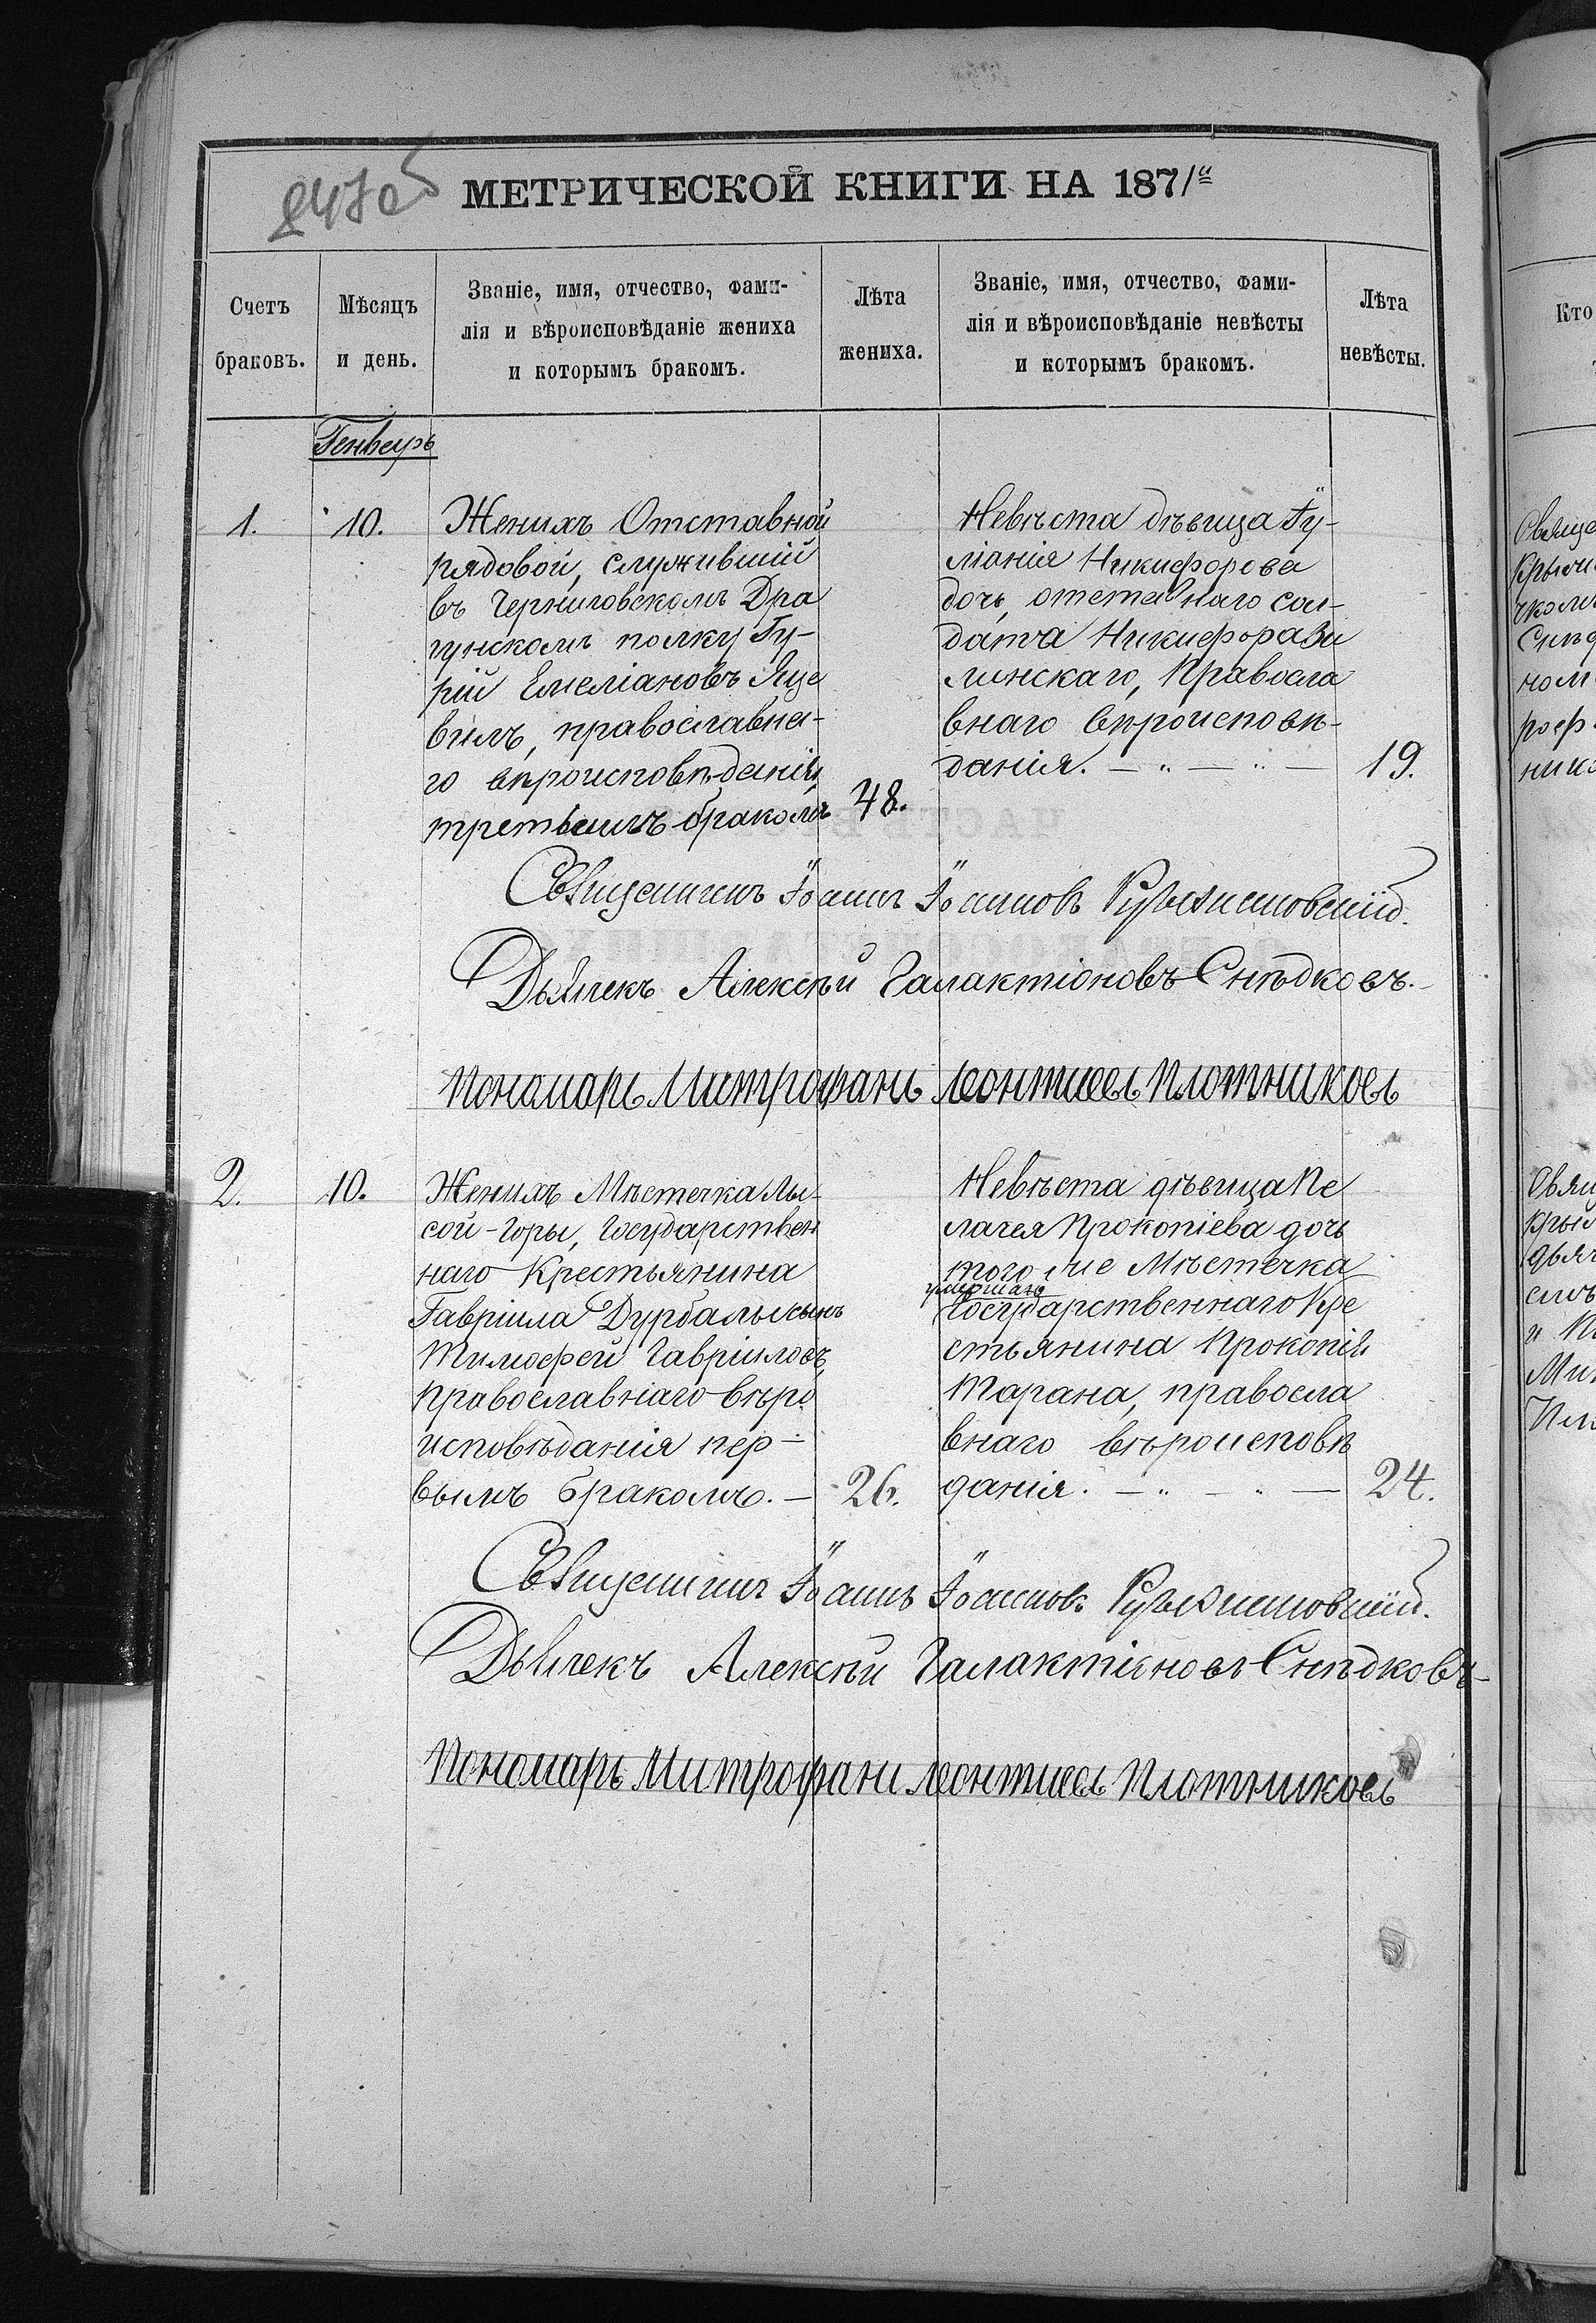 247об
МЕТРИЧЕСКОЙ КНИГИ НА 1871й
Счетъ
браковъ.
Мѣсяцъ
и день.
Званіе, имя, отчество, фами-
лія и вѣроисповѣданіе жениха
и которымъ бракомъ.
Лѣта
жениха.
Званіе, имя, отчество, фами-
лія и вѣроисповѣданіе невѣсты
и которымъ бракомъ.
Лѣта
невѣсты.
Генварь
1.
10.
Женихъ Отставной
рядовой, служившій
въ Черниговскомъ Дра
гунскомъ полку Гу-
рій Емеліановъ Яце
вилъ, православна-
го вѣроисповѣданія,
третьимъ бракомъ
48.
Невѣста дѣвица Іу-
ліанія Никифорова
дочь, отставнаго сол-
дата Никифора Зи
линскаго, Правосла
внаго вѣроисповѣ-
данія. — " — " —
19.
Священникъ Іоаннъ Іоанновъ
Дьячекъ Алексѣй Галактіоновъ Снѣдковъ.
Пономарь Митрофанъ Леонтиевъ Плотниковъ
2.
10.
Женихъ Мѣстечка Лы-
сой-Горы, Государствен
наго Крестьянина
Гавріила Дурбалы сынъ
Тимофей Гавріиловъ,
Православнаго вѣро
исповѣданія пер-
вымъ бракомъ. —
26.
Невѣста дѣвица Пе
лагея Прокопіева дочь
того же Мѣстечка
умершаго
Государственнаго Кре
стьянина Прокопія
Тарана, правосла
внаго вѣроисповѣ
данія. — " — " —
24.
Священникъ Іоаннъ Іоанновъ
Дьячекъ Алексѣй Галактіоновъ Снѣдковъ
Пономарь Митрофанъ Леонтиевъ Плотниковъ
Кто